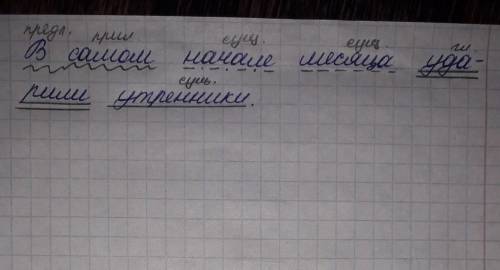 предл. прил сущ. сущ. гл.
В самом начале месяца уда-
сущ.
рили утренники.